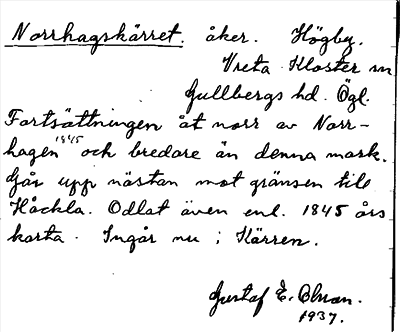 Norrhagskärret. åker. Högby.
Vreta Kloster sn
Gullbergs hd. Ögl.
Fortsättningen åt norr av Norr-
hagen 1845 och bredare än denna mark.
Går upp nästan mot gränsen till
Håckla. Odlat även enl. 1845 års
karta. Ingår nu i Kärren.
Gustaf E. Olsson.
1937.